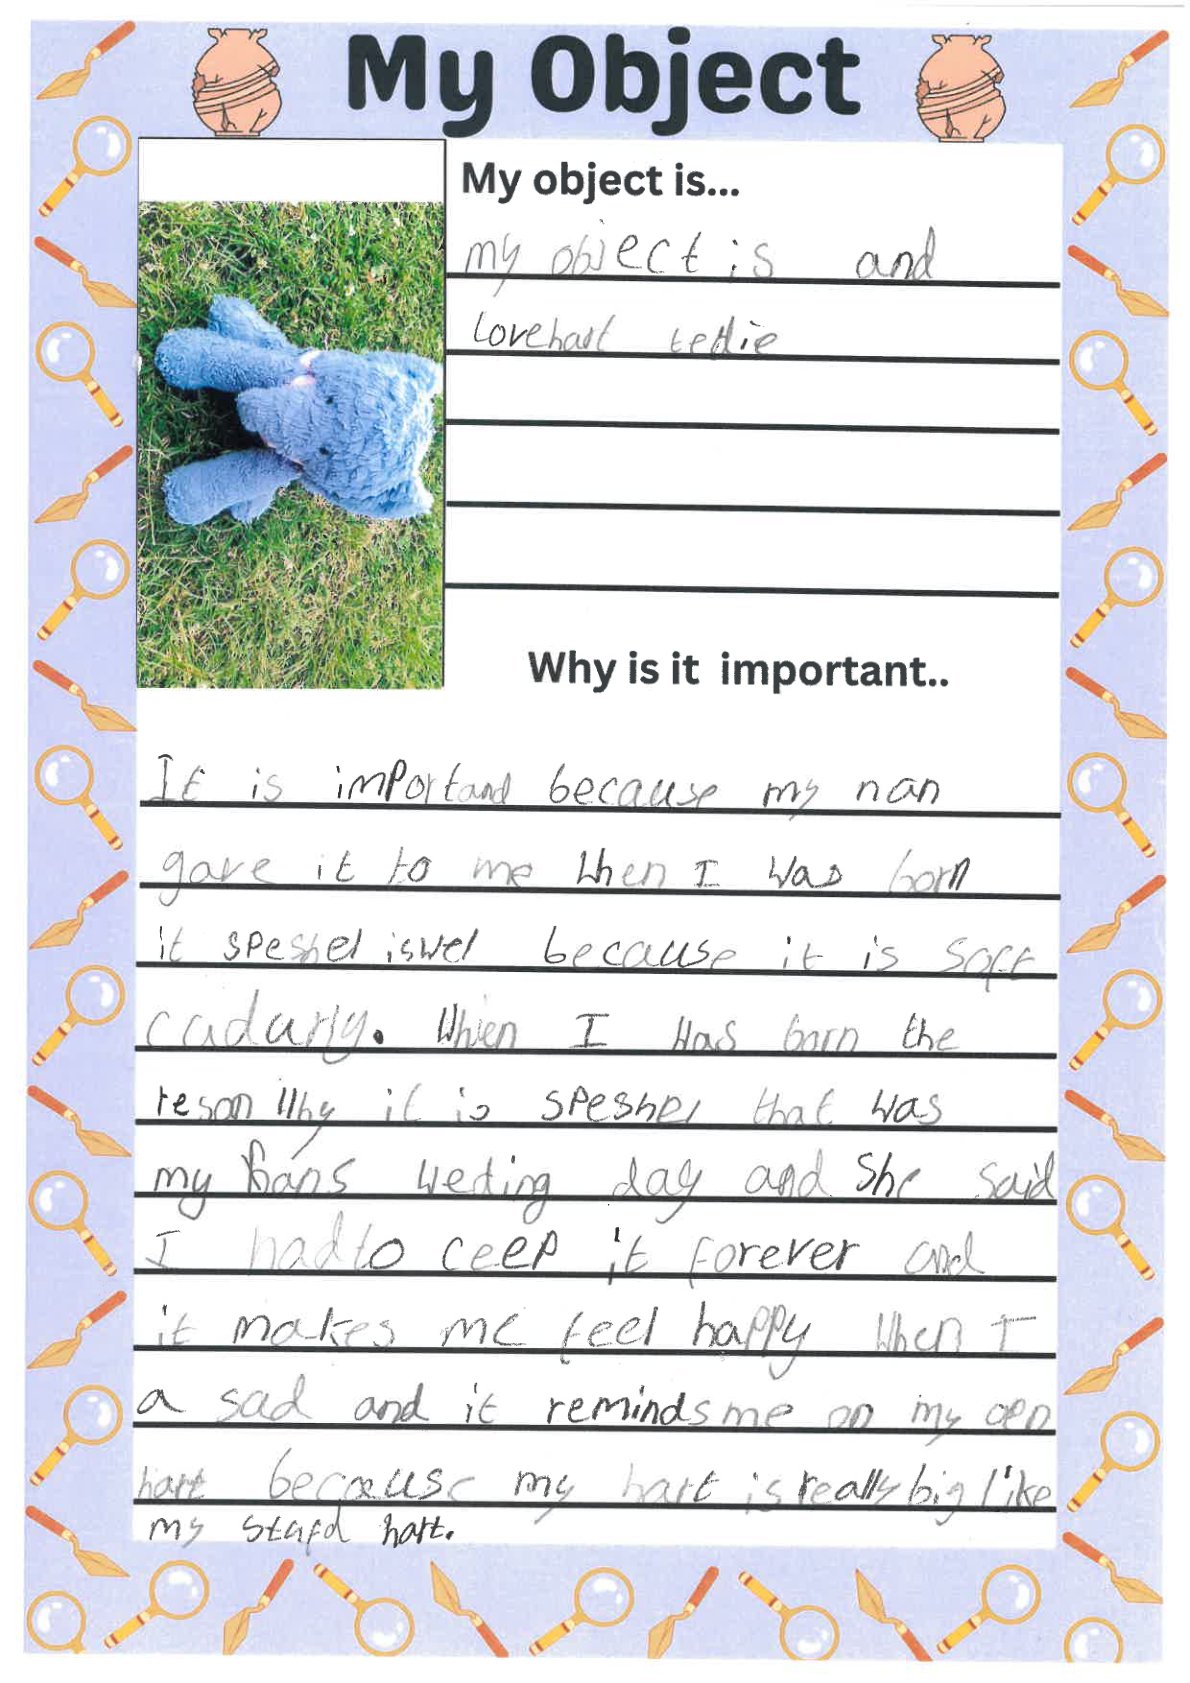 My Object
My object is...
my object is and
lovehart teddie
Why is it important..
It is importand because my nan
gave it to me when I was born
it speshel iswel because it is soft
cadarly. When I was born the
reson Why it is speshel that was
my nans weding day and She said
I had to ceep it forever and
it makes me feel happy When I
a sad and it reminds me on my oen
hart because my hart is really big like
my stafd hart.